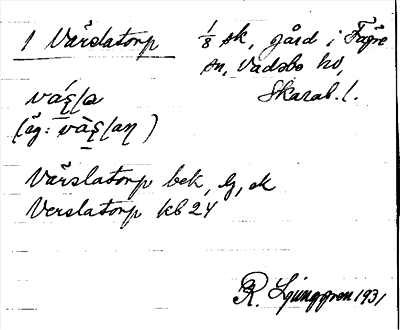 1 Värslatorp 1/8 sk, gård i Fägre
sn, Vadsbo hd,
Skarab. l.
(äg:
Värslatorp bek, lj, ek
Verslatorp kb 24
R. Ljunggren 1931